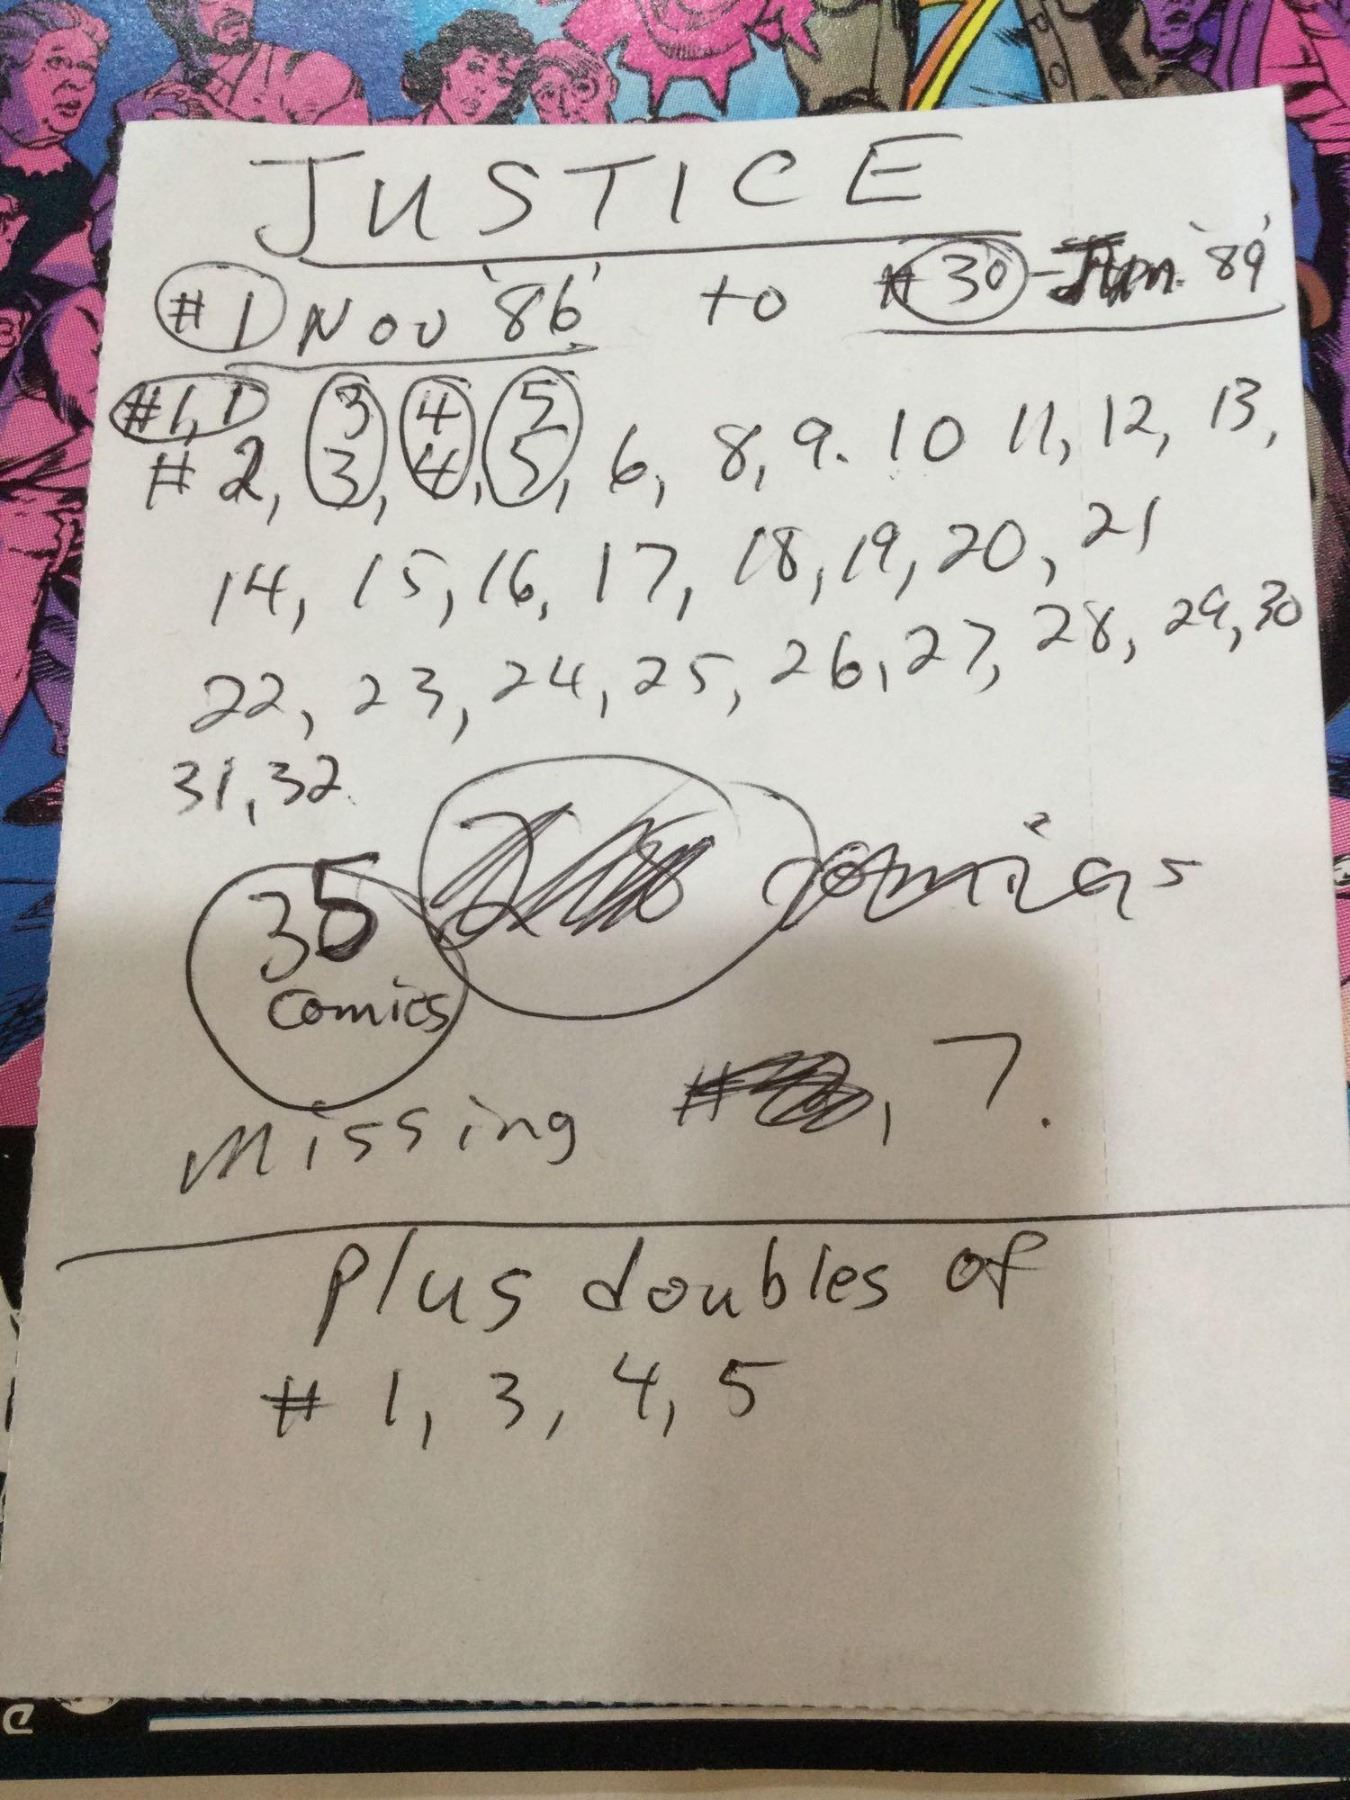 JUSTICE
#1 Nov '86' to #30 - '89'
#1,1 3 4 5
#2, 3, 4, 5, 6, 8, 9. 10 11, 12, 13,
14, 15, 16, 17, 18, 19, 20, 21
22, 23, 24, 25, 26, 27, 28, 29, 30
31, 32
35 comics
comics
Missing # , 7.
plus doubles of
# 1, 3, 4, 5